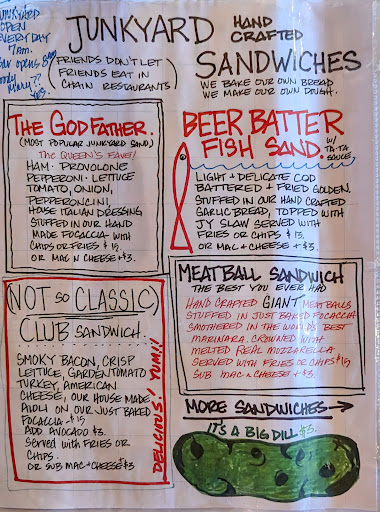 JUNKYARD
OPEN
EVERY DAY
7am.
Bar opens 8am
JUNKYARD HAND
CRAFTED
SANDWICHES
(FRIENDS DON'T LET
FRIENDS EAT IN
CHAIN RESTAURANTS)
WE BAKE OUR OWN BREAD
WE MAKE OUR OWN DOUGH.
THE GODFATHER.
(MOST POPULAR JUNKYARD SAND)
THE QUEEN'S FAVE!
HAM · PROVOLONE
PEPPERONI · LETTUCE
TOMATO, ONION,
PEPPERONCINI,
HOUSE ITALIAN DRESSING
STUFFED IN OUR HAND
MADE FOCACCIA WITH
CHIPS OR FRIES $15
OR MAC N CHEESE +$3.
BEER BATTER
FISH SAND. W/
TA-TA
SAUCE
LIGHT & DELICATE COD
BATTERED & FRIED GOLDEN,
STUFFED IN OUR HAND CRAFTED
GARLIC BREAD, TOPPED WITH
JY SLAW SERVED WITH
FRIES OR CHIPS $15.
OR MAC & CHEESE +$3.
MEATBALL SANDWICH
THE BEST YOU EVER HAD
HAND CRAFTED GIANT MEATBALLS
STUFFED IN JUST BAKED FOCACCIA
SMOTHERED IN THE WORLD'S BEST
MARINARA. CROWNED WITH
MELTED REAL MOZZARELLA
SERVED WITH FRIES OR CHIPS $15
SUB MAC N CHEESE +$3.
NOT SO CLASSIC
CLUB SANDWICH.
SMOKY BACON, CRISP
LETTUCE, GARDEN TOMATO
TURKEY, AMERICAN
CHEESE, OUR HOUSE MADE
AIOLI ON OUR JUST BAKED
FOCACCIA - $15
ADD AVOCADO $3.
Served with FRIES OR
CHIPS.
OR SUB MAC & CHEESE +$3
DELICIOUS! YUM!!
MORE SANDWICHES→
IT'S A BIG DILL $3.